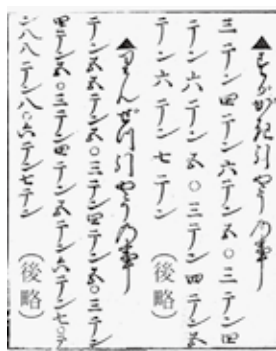 ▲すがかき引やうの事
三テン四テン六テン五〇三テン四
テン六テン五〇三テン四テン五
テン六テン七テン（後略）
▲りんぜつ引やうの事
テン五五テン五〇三テン四テン五〇三テン
四テン五〇三テン四テン五テン六テン七〇テ
ン八八テン八〇六テン七テン（後略）